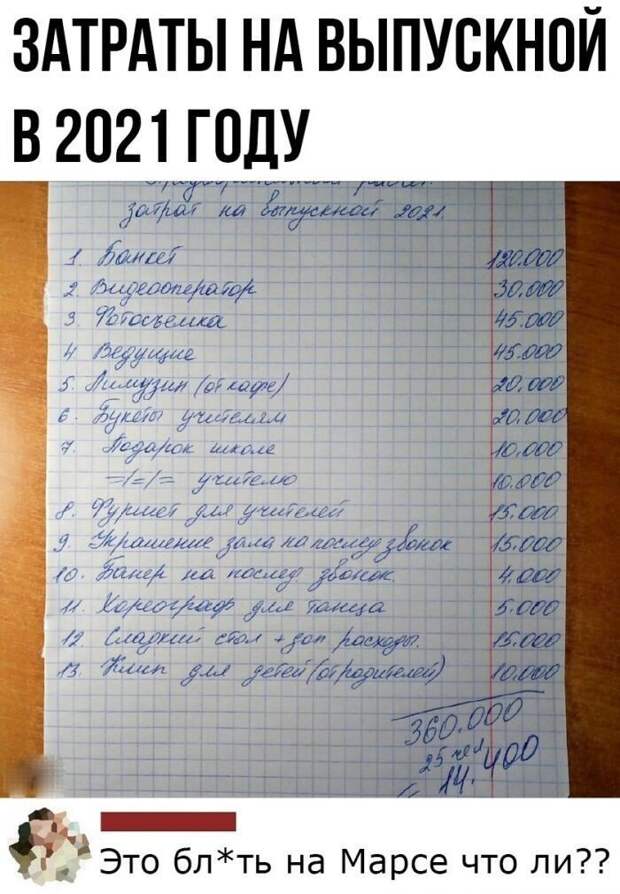 ЗАТРАТЫ НА ВЫПУСКНОЙ
В 2021 ГОДУ
затрат на выпускной 2021.
1. Банкет 120.000
2. Видеооператор 30.000
3. Фотосъемка 45.000
4 Ведущие 45.000
5. Лимузин (от кафе) 20.000
6. Букеты учителям 20.000
7. Подарок школе 10.000
=/=/= учителю 10.000
8. Фуршет для учителей 15.000
9. Украшение зала на послед звонок 15.000
10. Банер на послед. звонок. 4.000
11. Хореограф для танца 5.000
12 Сладкий стол + доп расходы. 15.000
13. Клип для детей (от родителей) 10.000
360.000
25 чел
= 14.400
Это бл*ть на Марсе что ли??